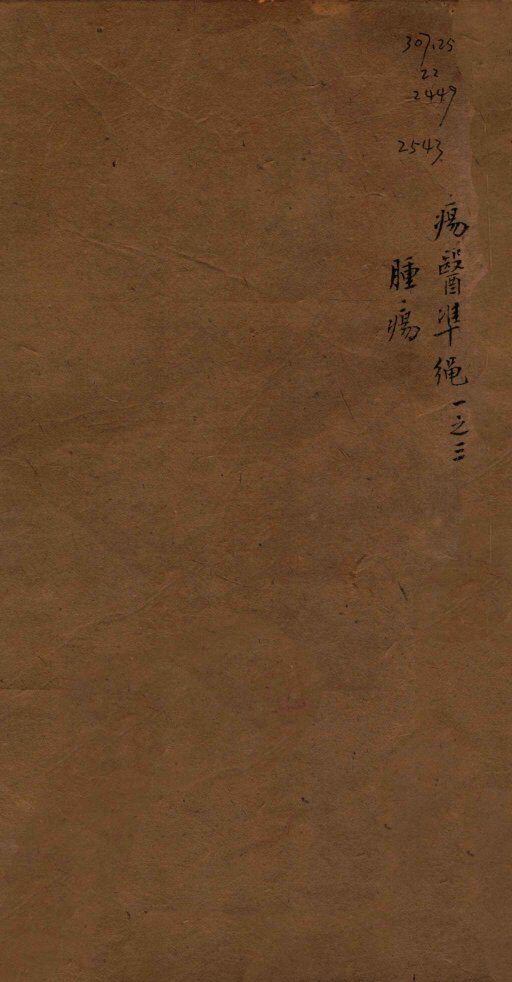 307.25
22
2449
2543
瘍醫準繩一之三
腫瘍